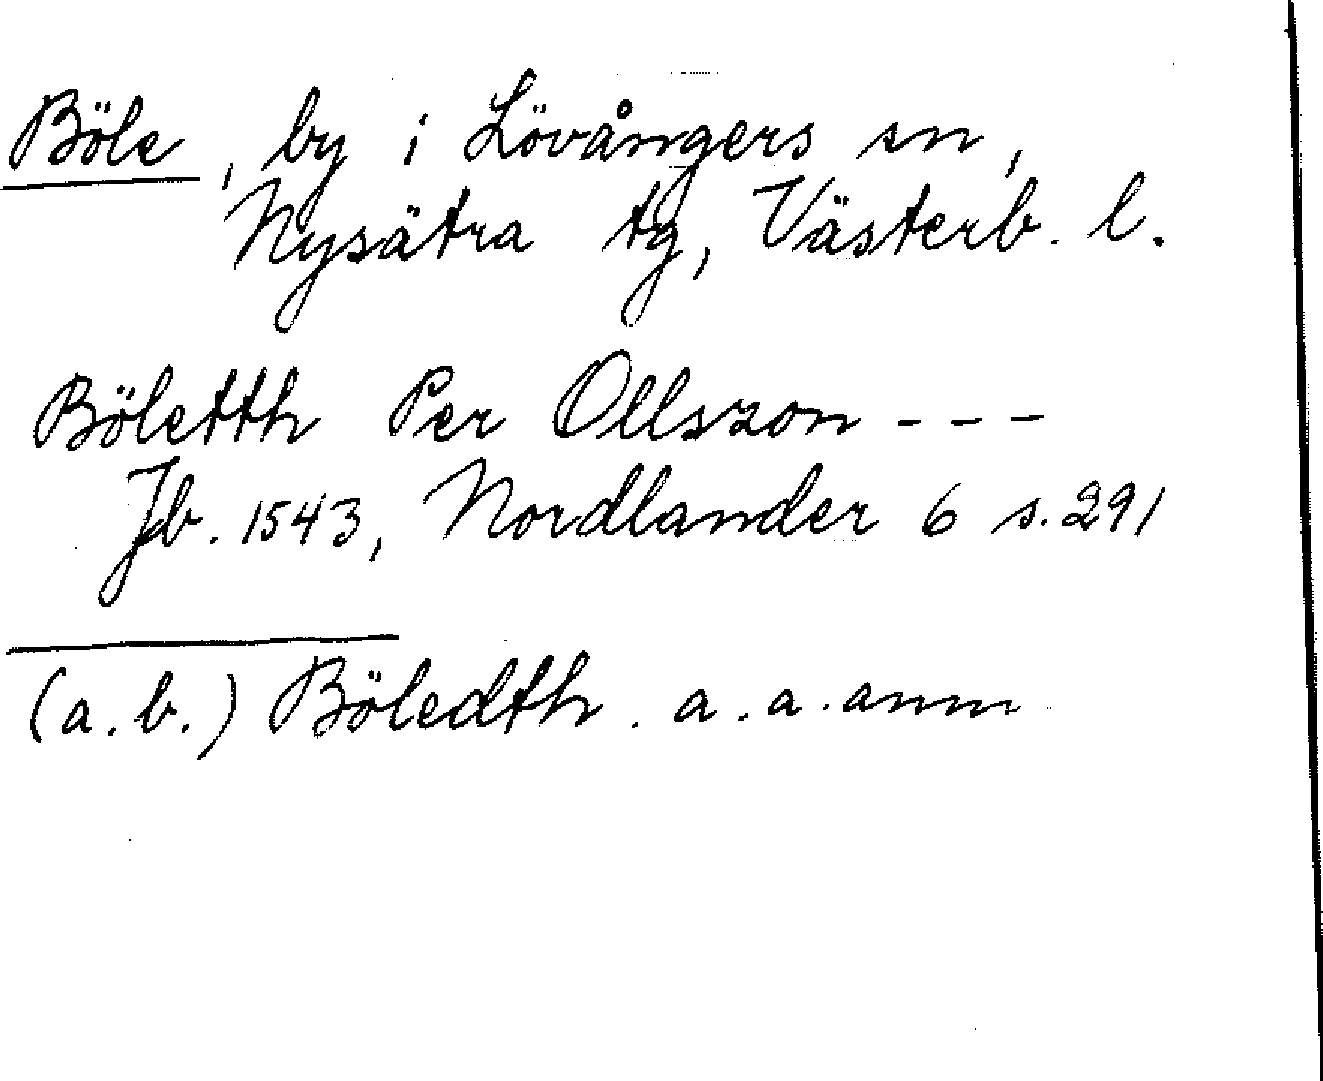 Böle, by i Lövångers sn,
Nysätra tg, Västerb. l.
Böletth Per Ollszon - - -
Jb. 1543, Nordlander 6 s. 291
(a. b.) Böledth. a. a. anm